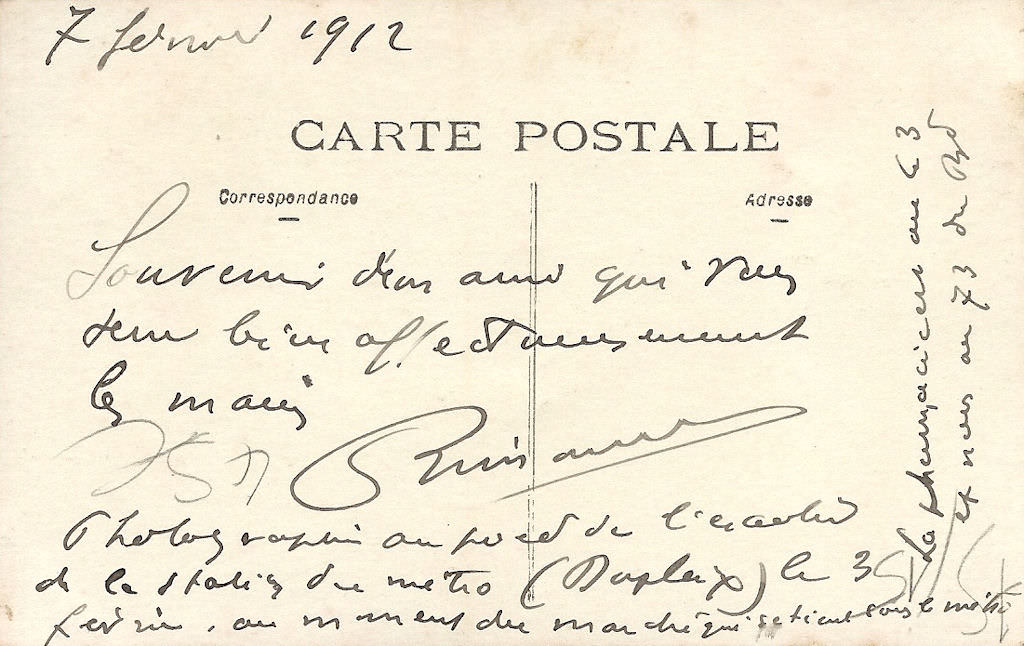 7 février 1912
CARTE POSTALE
Correspondance
Adresse
Souvenir d'un ami qui vous
serre bien affectueusement
les mains
Photographie au pied de l'escalier
de la station du métro (Dupleix) le 3
février, au moment du marché qui se tient sous le métro
La pharmacien au 63
et nous au 73 du Bd